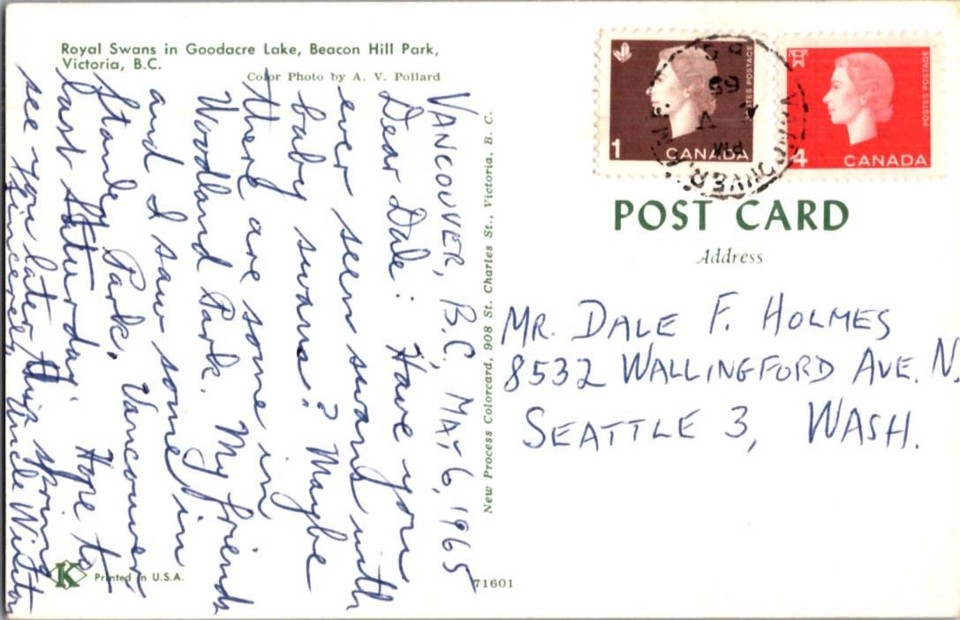 Royal Swans in Goodacre Lake, Beacon Hill Park,
Victoria, B.C.
Color Photo by A. V. Pollard
VANCOUVER, B.C. MAY 6, 1965
Dear Dale: Have you
ever seen swans with
baby swans? Maybe
there are some in
Woodland Park. My friends
and I saw some in
Stanley Park, Vancouver
last Saturday. Hope to
see you later this spring
Sincerely, Uncle
New Process Colorcard, 908 St. Charles St., Victoria, B. C.
K Printed in U.S.A.
71601
1 CANADA
POSTES POSTAGE
4 CANADA
POSTES POSTAGE
VANCOUVER
PM
V
65
B C
POST CARD
Address
MR. DALE F. HOLMES
8532 WALLINGFORD AVE. N.
SEATTLE 3, WASH.